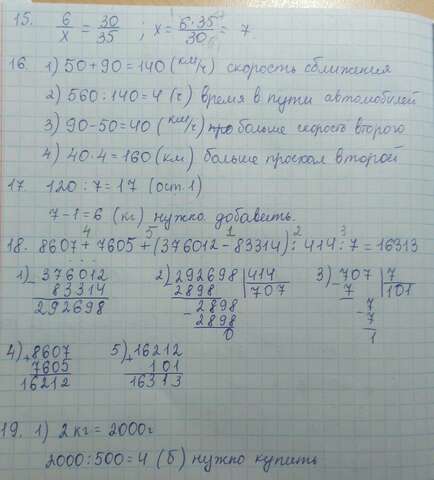 15. 6/x = 30/35 ; x = 6·35/30 = 7.
16. 1) 50+90=140 (км/ч) скорость сближения
2) 560:140=4 (ч) время в пути автомобилей
3) 90-50=40 (км/ч) больше скорость второго
4) 40·4=160 (км) больше проехал второй
17. 120:7=17 (ост.1)
7-1=6 (кг) нужно добавить.
4 5 1 2 3
18. 8607+7605+(376012-83314):414:7=16313
1) 376012 2) 292698 414 3) 707 7
- 83314 2898 707 - 7 101
292698 - 2898 - 7
2898 7
0 1
4) +8607 5) +16212
7605 101
16212 16313
19. 1) 2кг=2000г
2000:500=4 (б) нужно купить